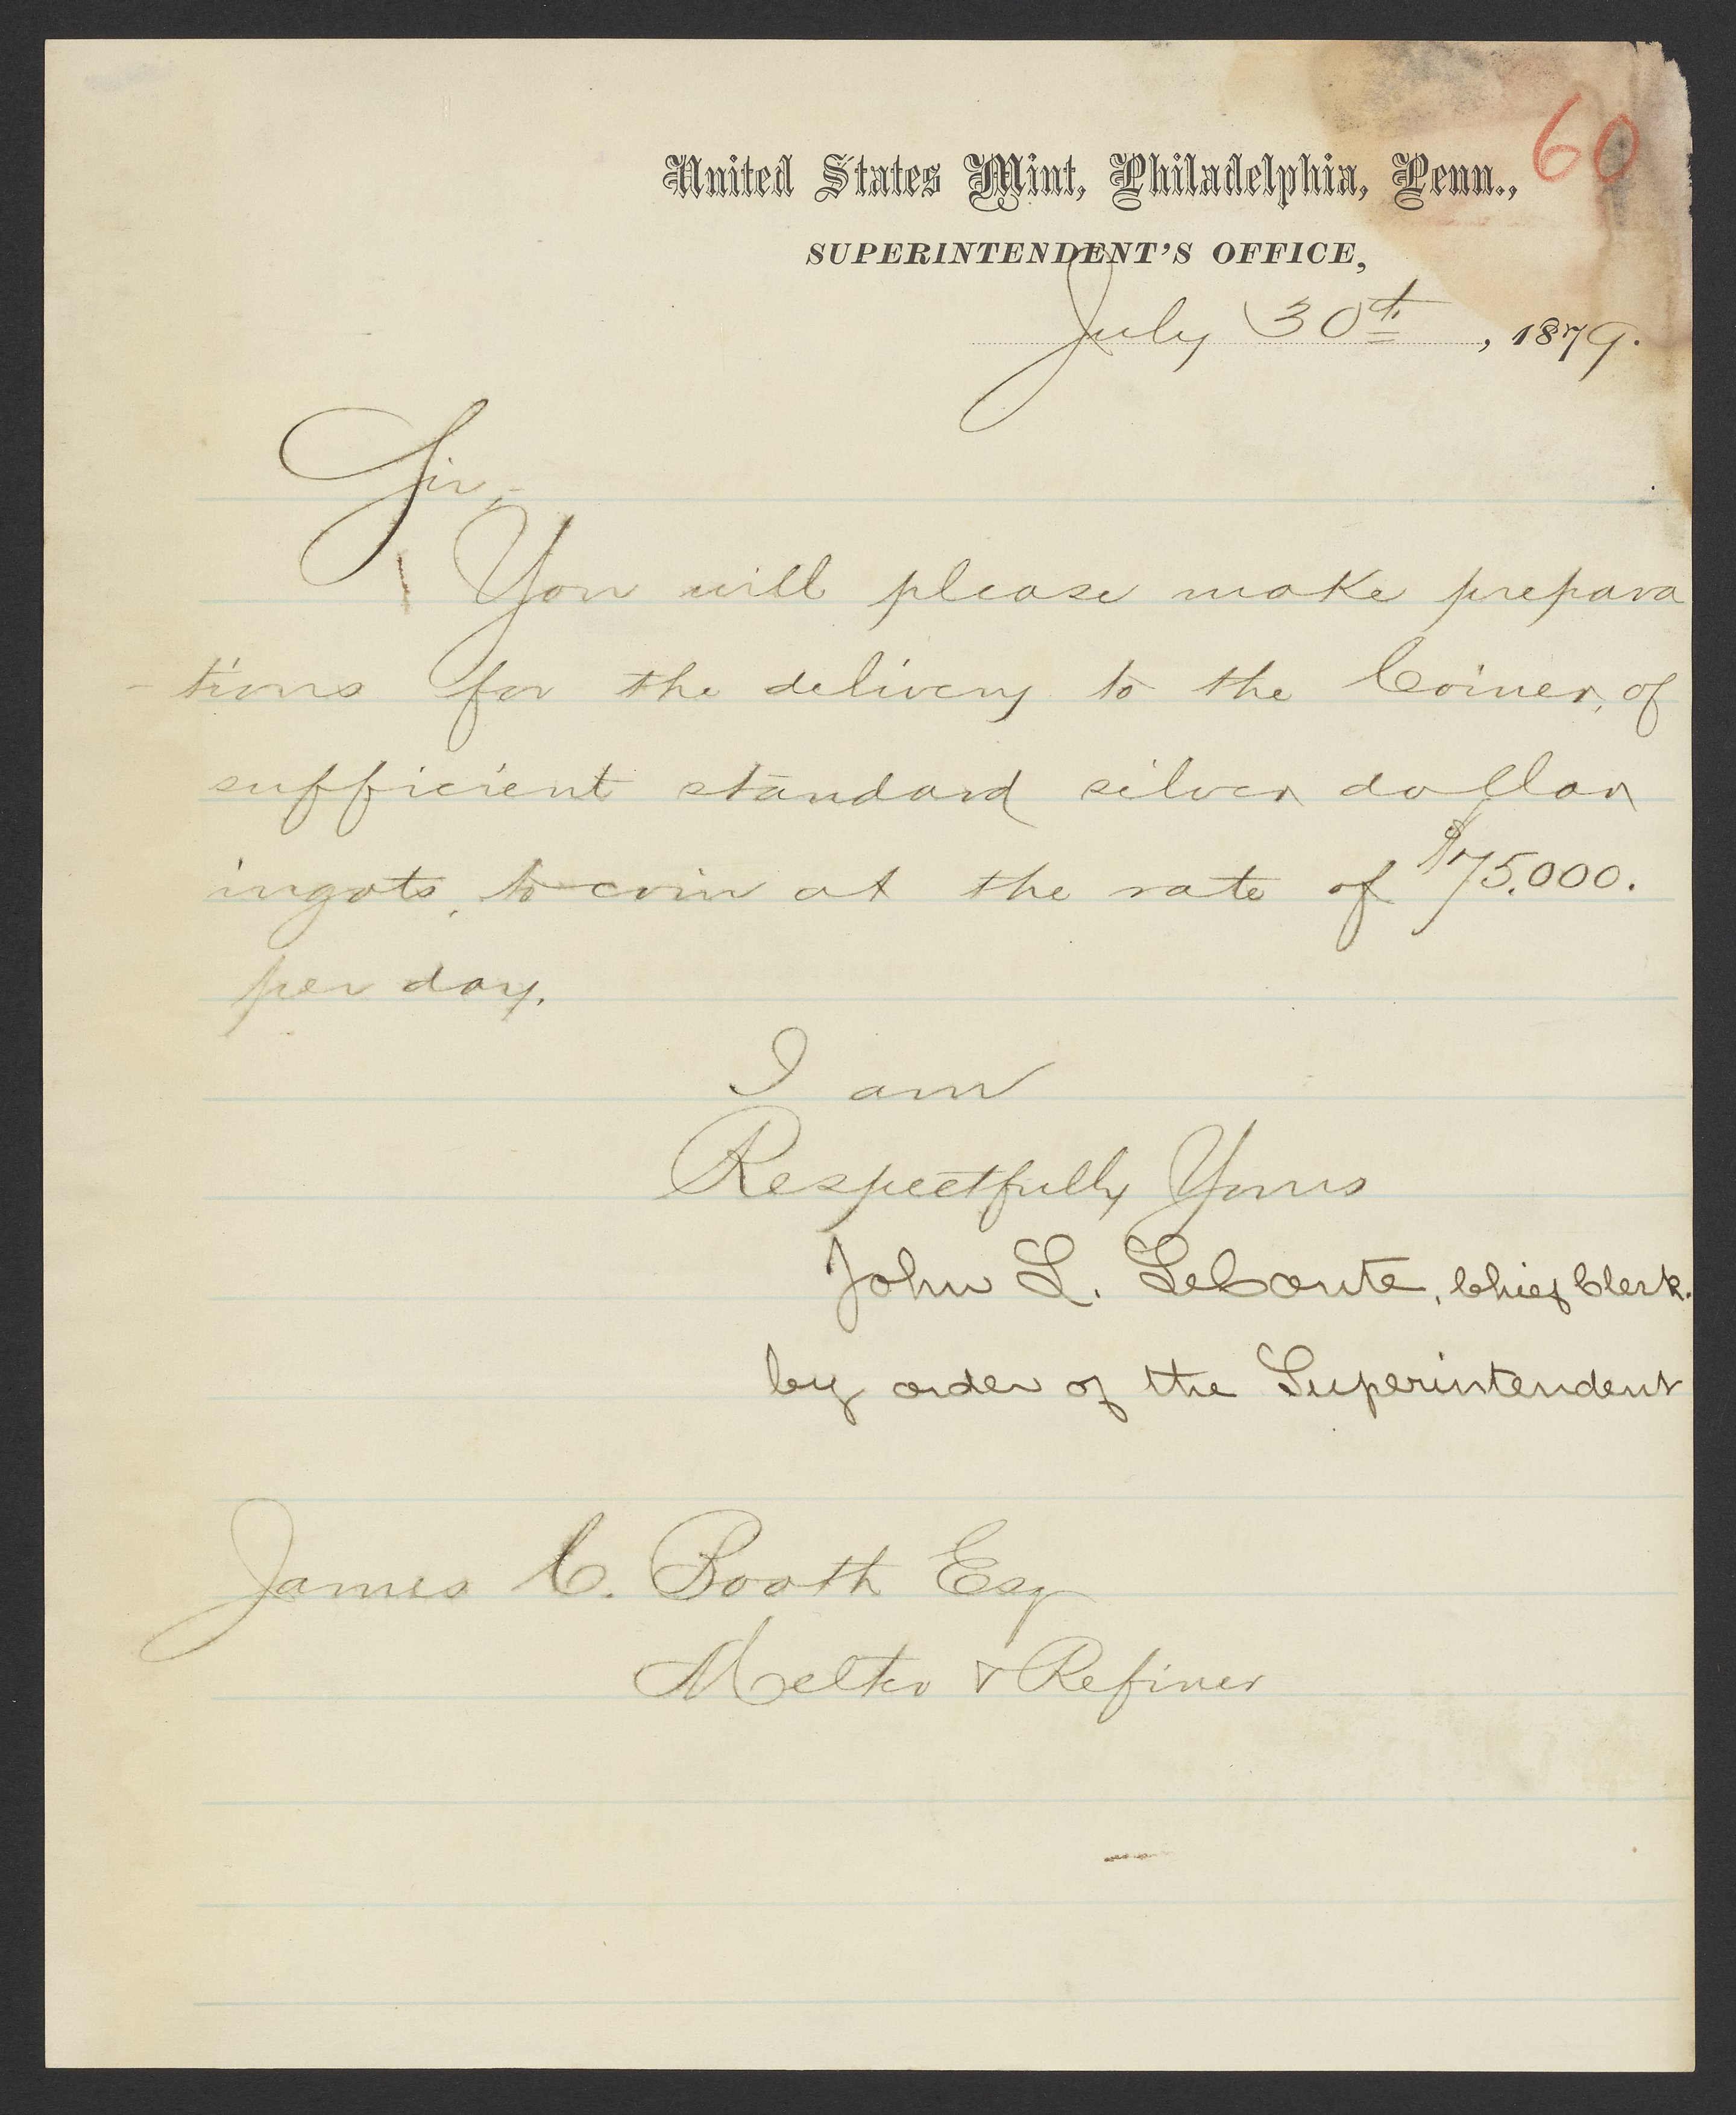 60
United States Mint, Philadelphia, Penn.,
SUPERINTENDENT'S OFFICE,
July 30th, 1879.
Sir,
You will please make prepara
-tions for the delivery to the Coiner, of
sufficient standard silver dollar
ingots, to coin at the rate of $75,000.
per day.
I am
Respectfully Yours
John L. LeConte, Chief Clerk.
by order of the Superintendent
James C. Booth Esq
Melter & Refiner